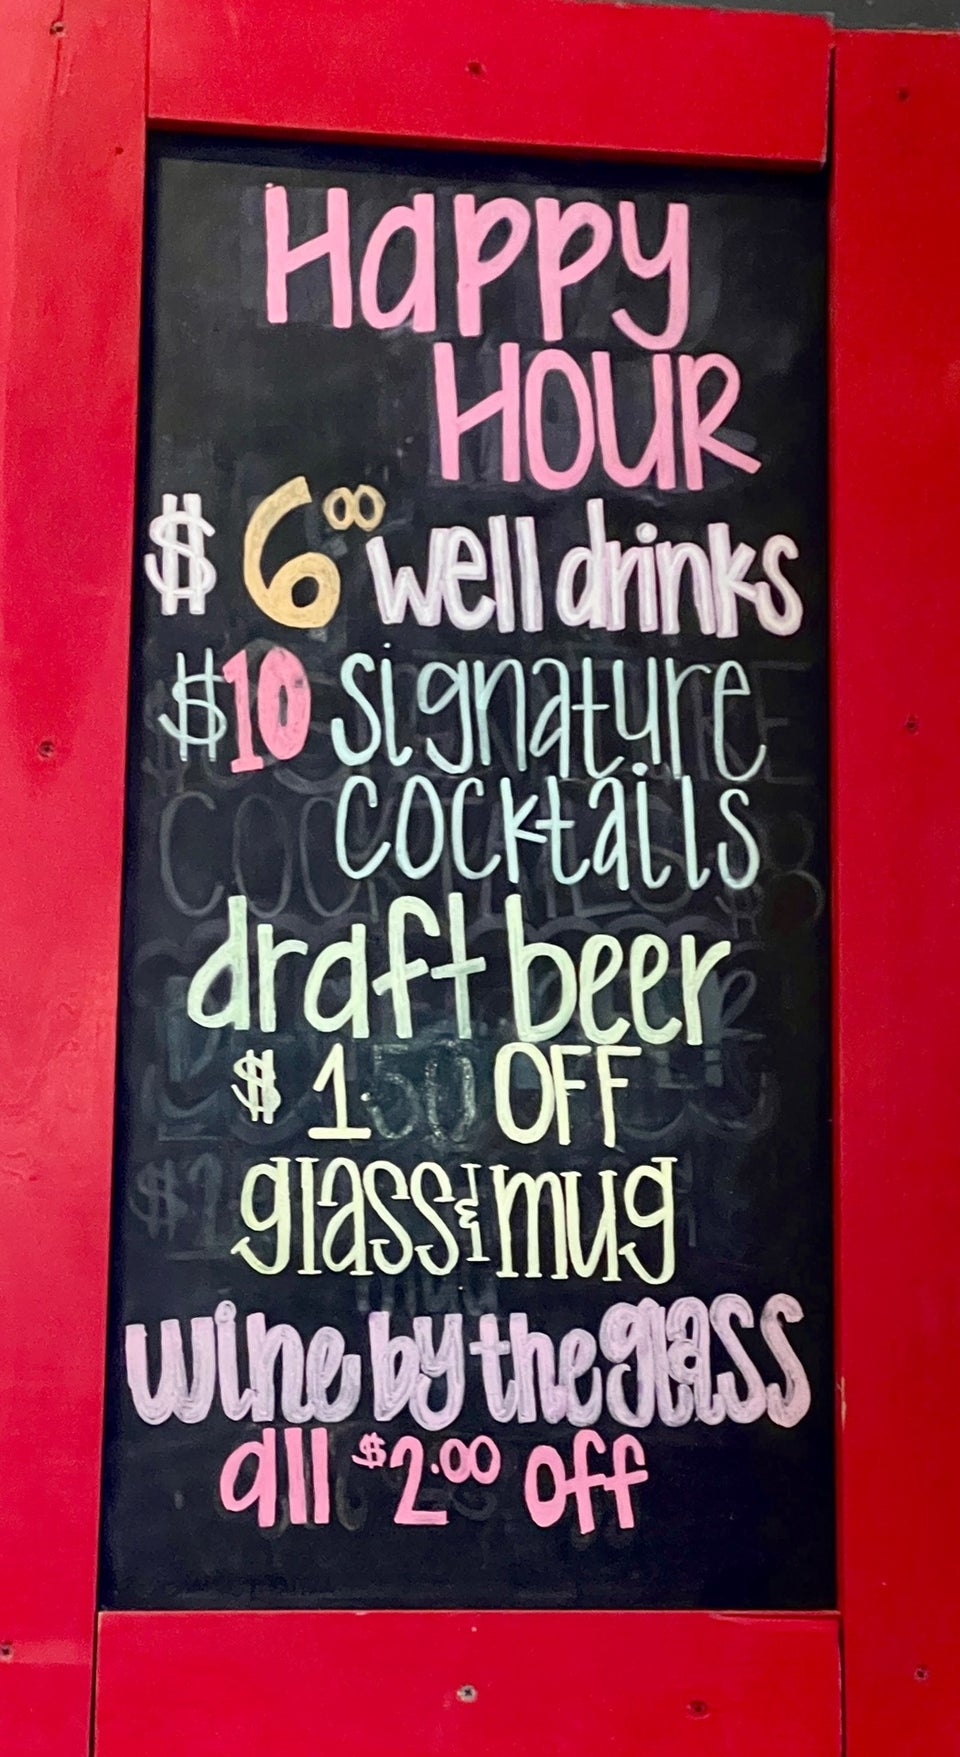 Happy
HOUR
$6.00 well drinks
$10 signature
cocktails
draft beer
$1 OFF
glass & mug
wine by the glass
all $2.00 off